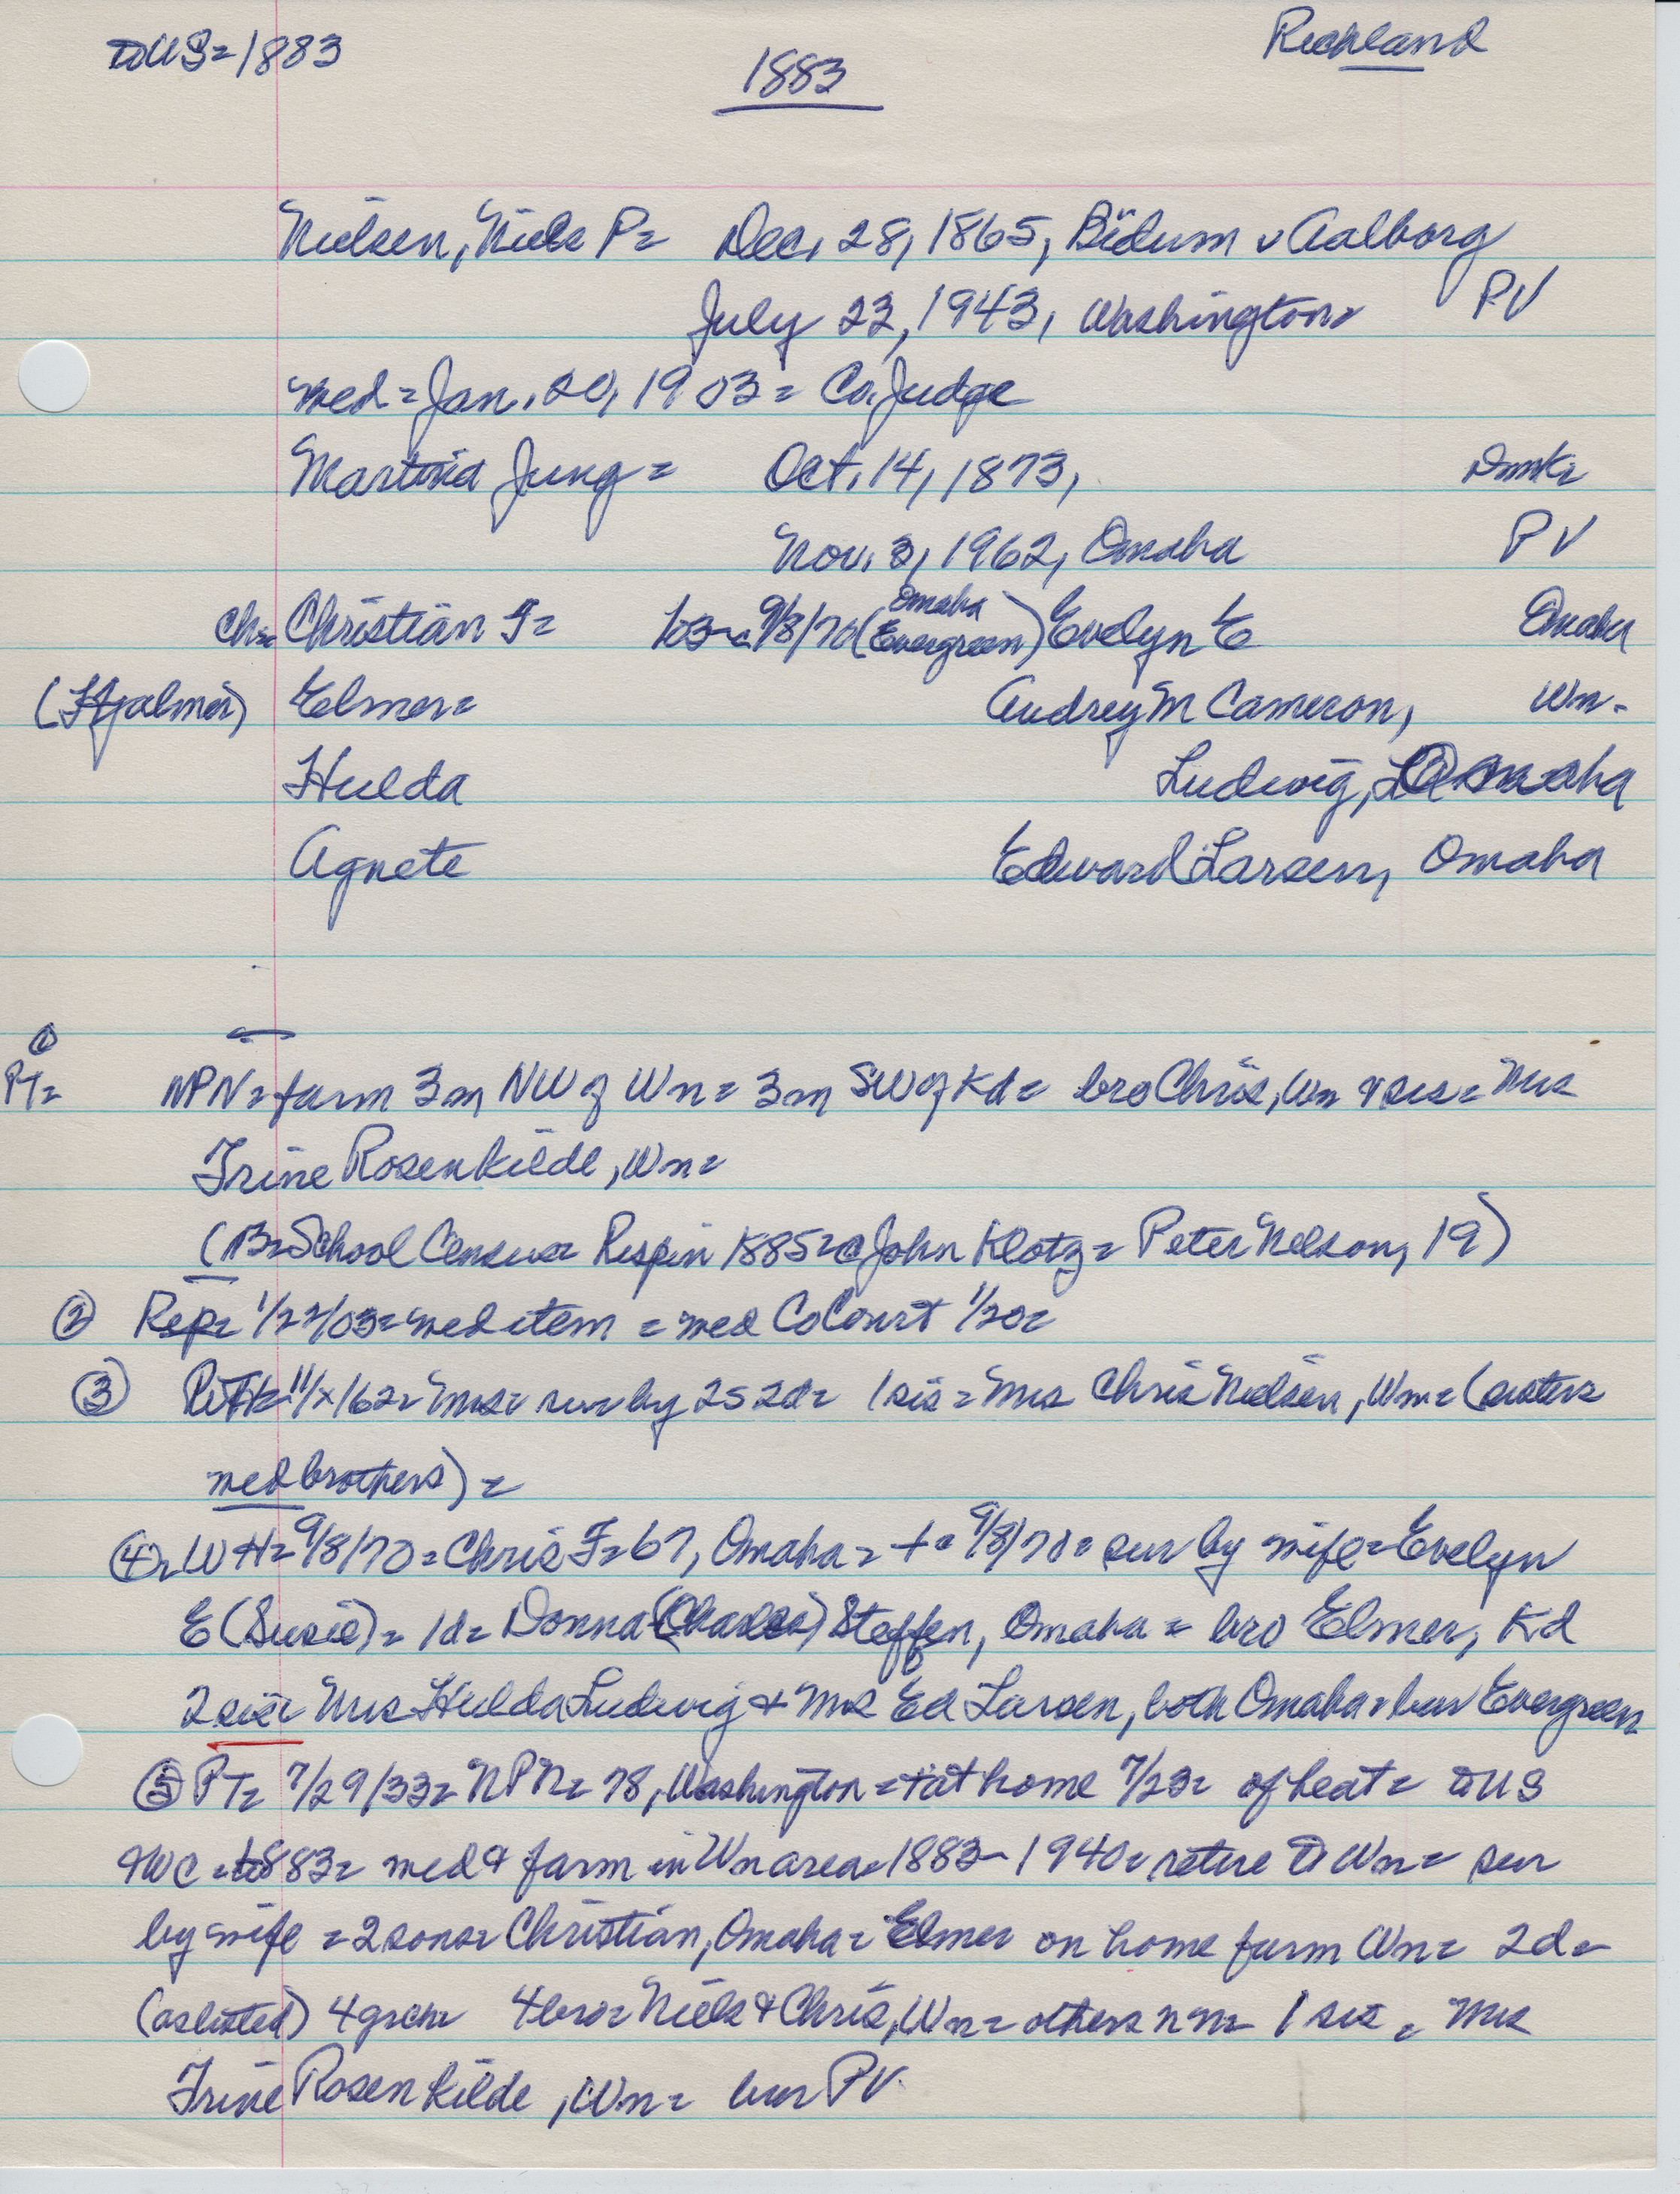 to US = 1883
1883
Richland
Nielsen, Niels P = Dec. 28, 1865, Bidum v Aalborg
July 23, 1943, Washington = PV
med = Jan. 20, 1903 = Co. Judge
Jung = Oct. 14, 1873, Dmk =
Nov. 3, 1962, Omaha PV
ch = Christian F = 9/8/70 (Omaha Evergreen) Evelyn E Omaha
(Hjalmer) Elmer = Audrey M Cameron, Wn.
Hulda Ludwig, Omaha
Agnete Edward Larsen, Omaha
①
PT = NPN = farm 3 m NW of Wn = 3 m SW of Kd = bro Chris, Wn & sis = Mrs
Trine Rosenkilde, Wn =
(13 = School Census = 1885 = c John Klotz = Peter Nelson, 19)
② Rep = 1/22/03 = med item = med Co Court 1/20 =
③ 11/x/62 = Mrs = sur by 2s 2d = 1 sis = Mrs Chris Nielsen, Wn = (sisters
med brothers) =
④ = WH = 9/8/70 = Chris F = 67, Omaha = + = 9/8/70 = sur by wife = Evelyn
E (Susie) = 1d = Donna (Charles) Steffen, Omaha = bro Elmer, Kd
2 sis = Mrs Hulda Ludwig & Mrs Ed Larsen, both Omaha = bur Evergreen
⑤ PT = 7/29/33 = NPN = 78, Washington = + at home 7/23 = of heat = to US
& WC = 1883 = med & farm in Wn area = 1883 - 1940 = retire to Wn = sur
by wife = 2 sons = Christian, Omaha = Elmer on home farm Wn = 2d =
(as listed) 4 grch = 4 bro = Niels & Chris, Wn = others nn = 1 sis = Mrs
Trine Rosenkilde, Wn = bur PV